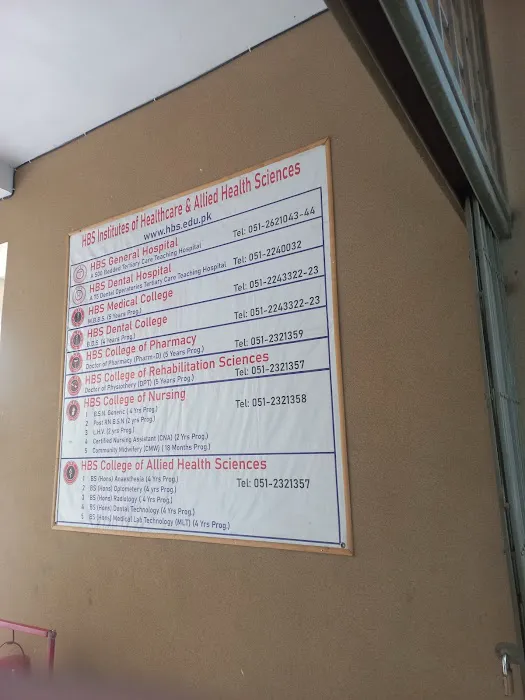 HBS Institutes of Healthcare & Allied Health Sciences
www.hbs.edu.pk
HBS General Hospital
A 500 Bedded Tertiary Care Teaching Hospital
Tel: 051-2621043-44
HBS Dental Hospital
A 70 Dental Operatories Tertiary Care Teaching Hospital
Tel: 051-2240032
HBS Medical College
M.B.B.S. (5 Years Prog.)
Tel: 051-2243322-23
HBS Dental College
B.D.S (4 Years Prog.)
Tel: 051-2243322-23
HBS College of Pharmacy
Doctor of Pharmacy (Pharm-D) (5 Years Prog.)
Tel: 051-2321359
HBS College of Rehabilitation Sciences
Doctor of Physiothery (DPT) (5 Years Prog.)
Tel: 051-2321357
HBS College of Nursing
Tel: 051-2321358
1 B.S.N. Generic (4 Yrs Prog.)
2 Post RN B.S.N (2 yrs Prog.)
3 L.H.V. (2 yrs Prog.)
4 Certified Nursing Assistant (CNA) (2 Yrs Prog.)
5 Community Midwifery (CMW) (18 Months Prog.)
HBS College of Allied Health Sciences
Tel: 051-2321357
1 BS (Hons) Anaesthesia (4 yrs Prog.)
2 BS (Hons) Optometery (4 yrs Prog.)
3 BS (Hons) Radiology (4 yrs Prog.)
4 BS (Hons) Dental Technology (4 Yrs Prog.)
5 BS (Hons) Medical Lab Technology (MLT) (4 Yrs Prog.)